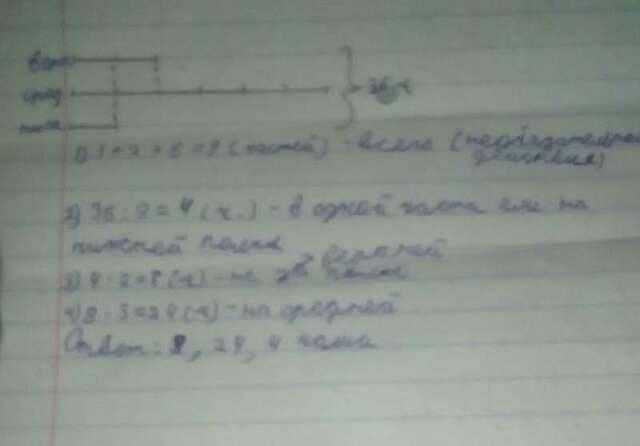 верх
сред
нижн
36 ч
1) 1 + 2 + 6 = 9 (частей) - всего
2) 36 : 9 = 4 (ч.) - в одной части или на
нижней полке
3) 4 · 2 = 8 (ч) - на верхней полке
4) 8 · 3 = 24 (ч) - на средней
Ответ: 8, 24, 4 чаши